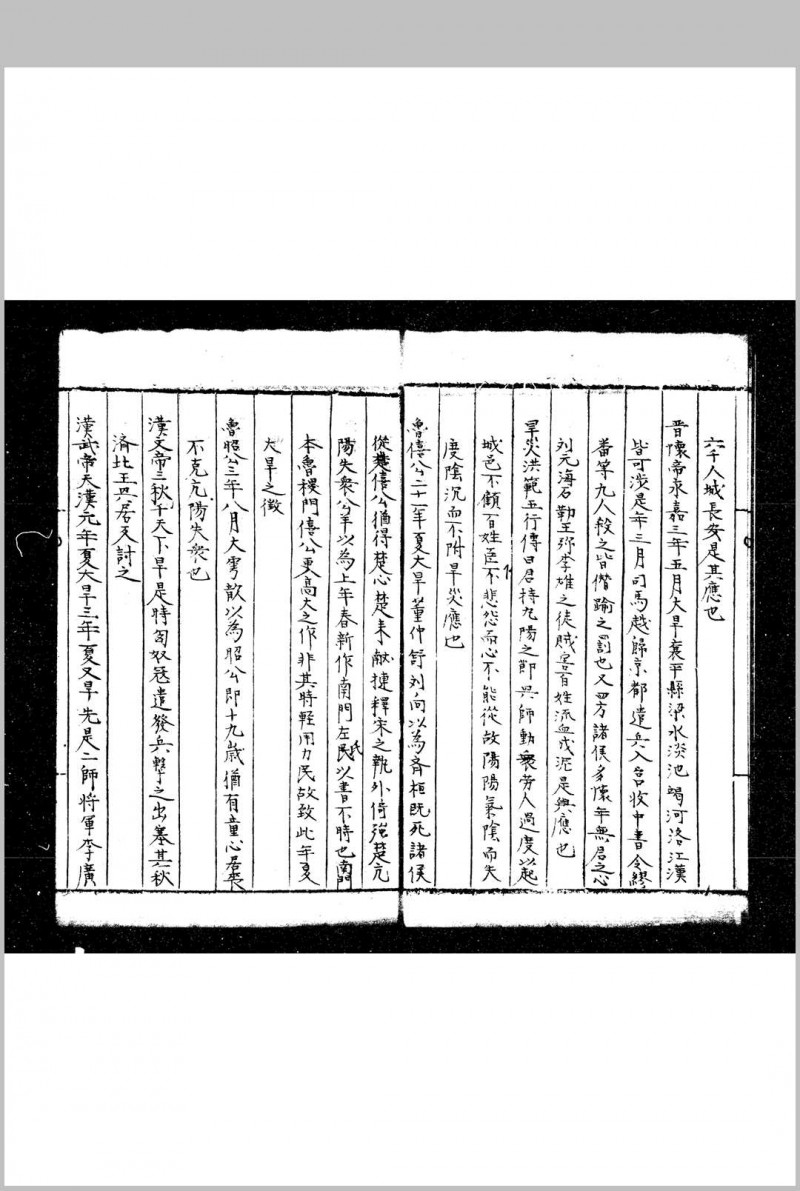 六千人城長安是其應也
晋懷帝永嘉三年五月大旱襄平縣梁水淡池竭河洛江漢
皆可涉是年三月司馬越歸京都遣兵入台收中書令繆
番等九人殺之皆僭踰之罰也又四方諸侯多懷年無君之心
刘元海石勒王弥李雄之徒賊害百姓流血成泥是興應也
旱災洪範五行傳曰君持亢陽之節興師動衆劳人過度以起
城邑不顧百姓臣不悲怨而心不能從故陽陽氣陰而失
度陰沉而不附旱災應也
魯僖公二十一年夏大旱董仲舒刘向以為齊桓既死諸侯
從楚僖公猶得楚心楚来献捷釋宋之執外倚強楚亢
陽失衆公羊以為上年春新作南門左氏以書不時也南門
本魯稷門僖公更高大之作非其時軽用力民故致此年夏
大旱之徵
魯昭公三年八月大雩歆以為昭公即十九歳猶有童心居喪
不克亢陽失衆也
漢文帝三秋千天下旱是時匈奴冦遣發兵擊之出塞其秋
済北王興居反討之
漢武帝天漢元年夏大旱三年夏又旱先是二師将軍李廣